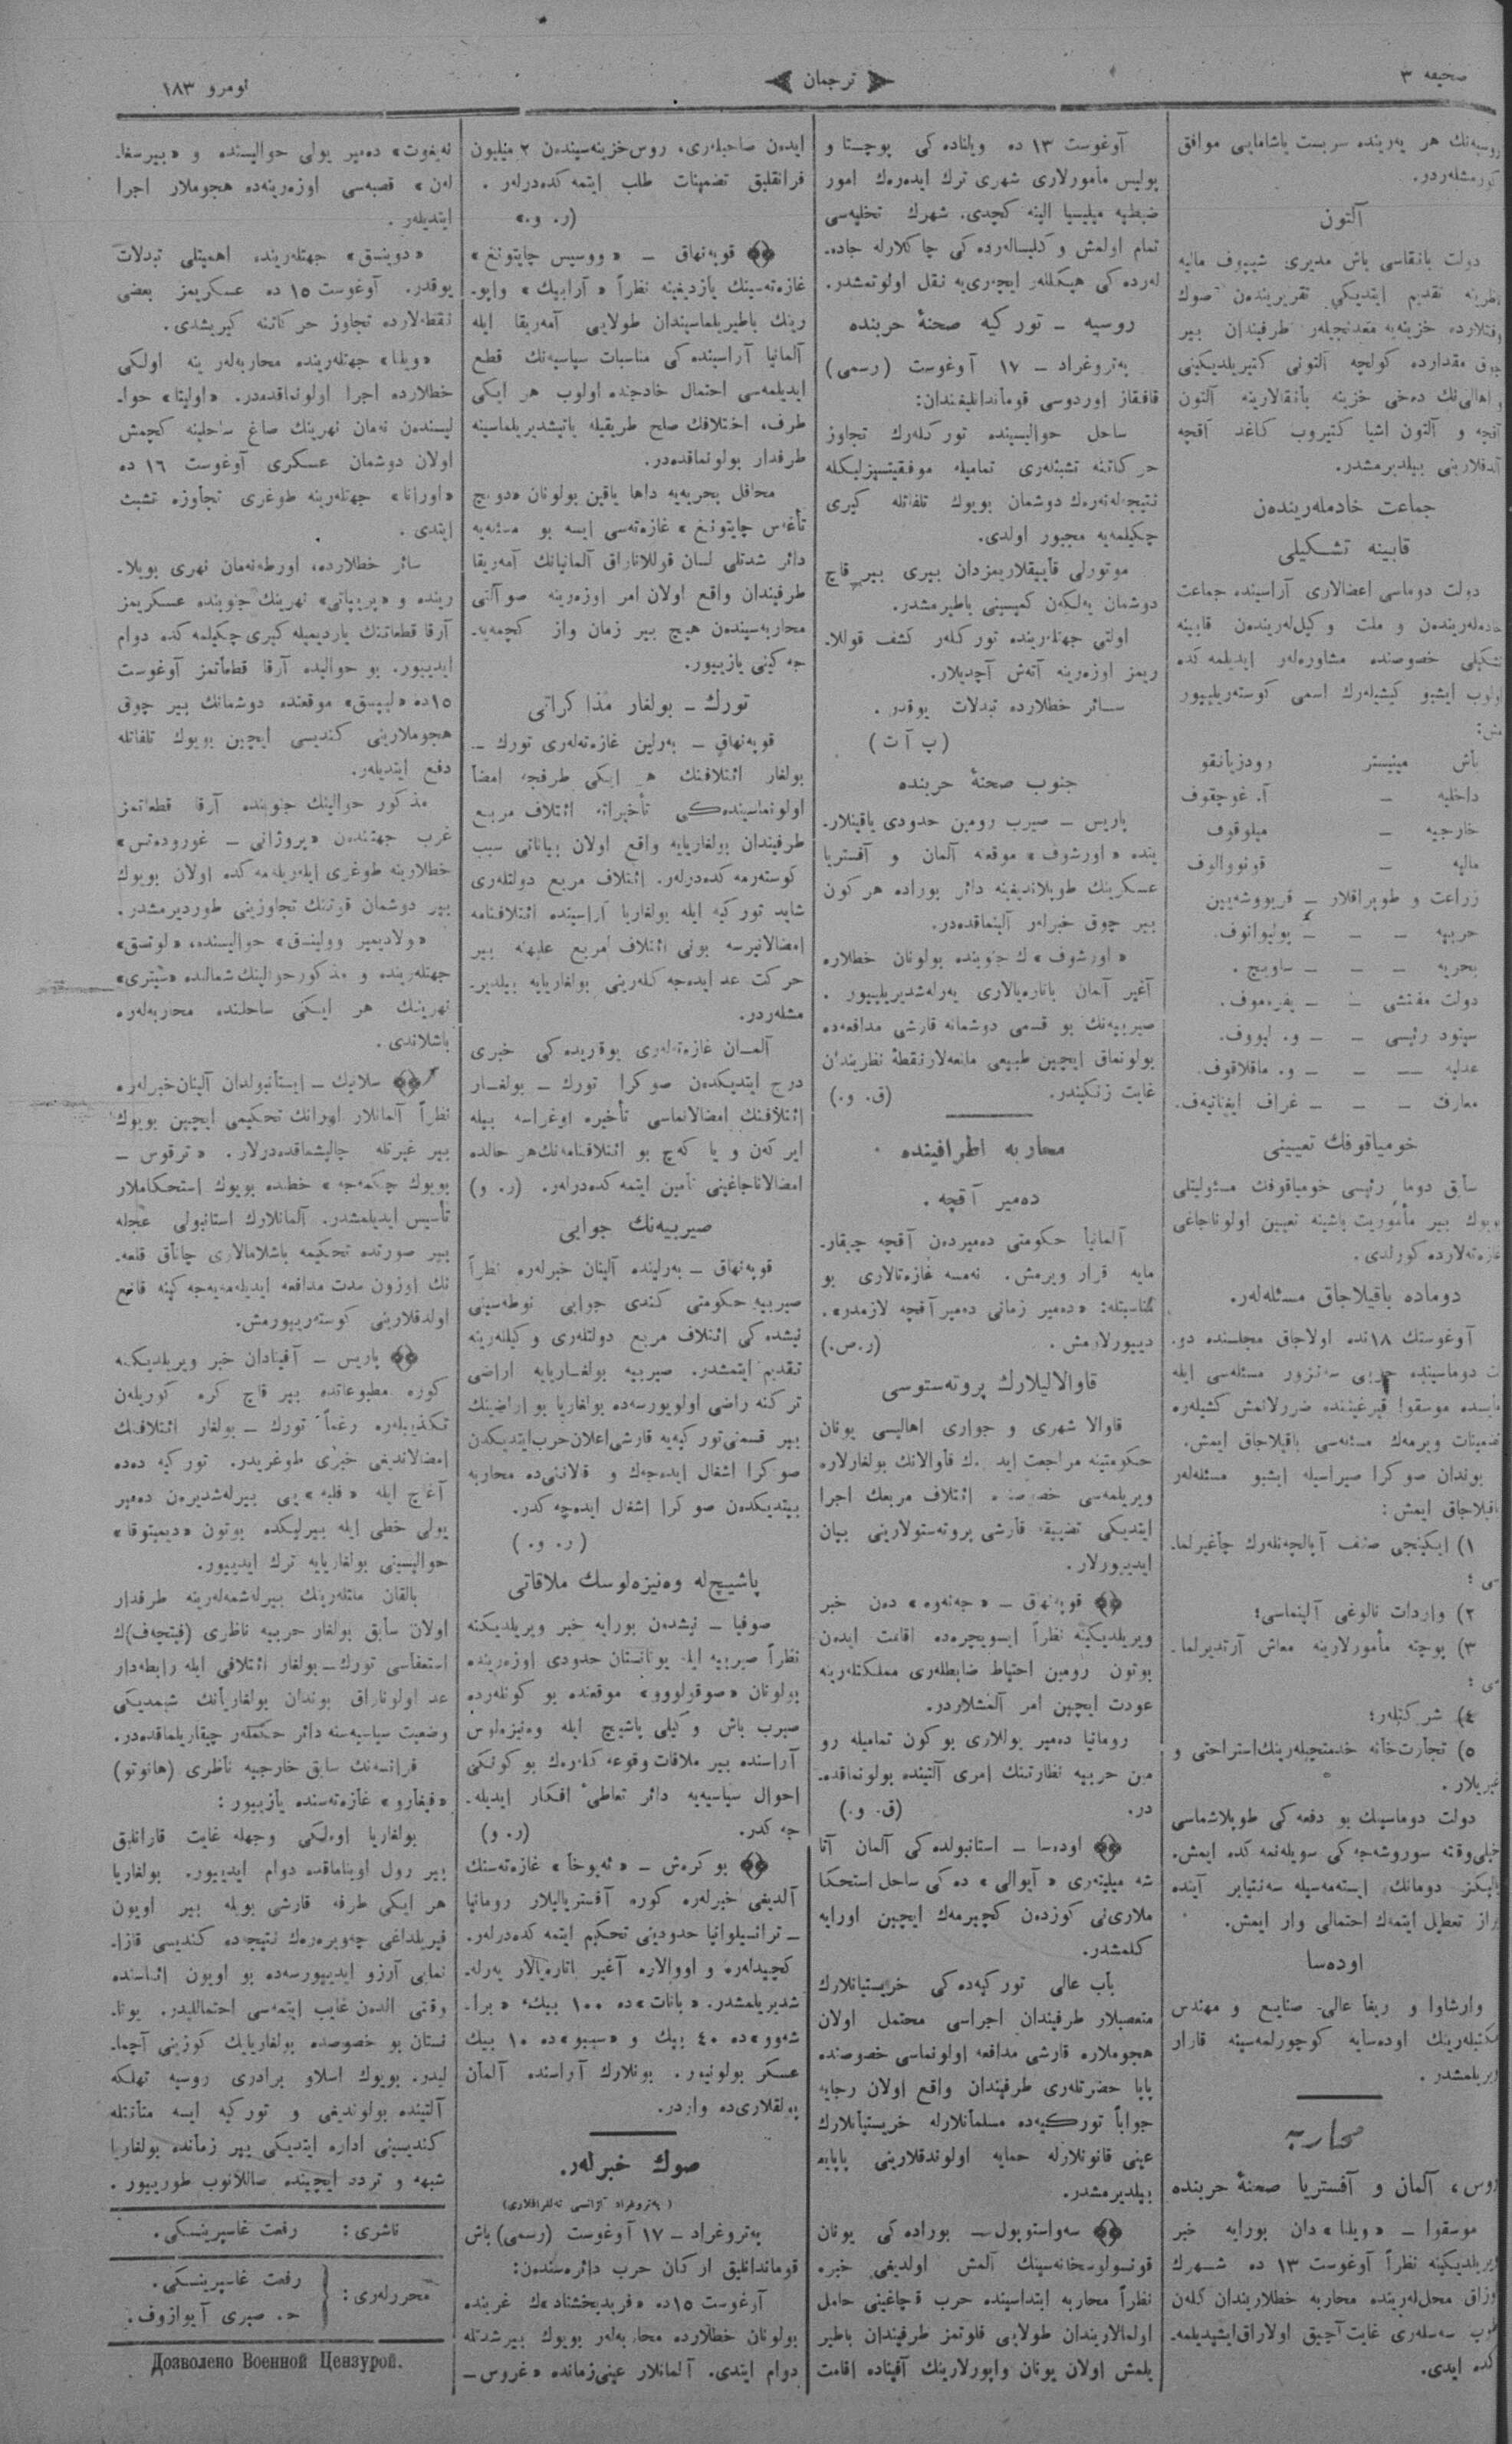 صحیفه ۳
ترجمان
نومرو ۱۸۳
روسیه‌نك هر یه‌رینده سربست یاشامایی موافق
كورمشله‌ردر.
آلتون
دولت بانقاسی باش مدیری شیپوف مالیه
ناظرینه تقدیم ایتدیكی تقریرینده‌ن صوك
وقتلارده خزینه‌یه معدنجیله‌ر طرفیندان بیر
چوق مقدارده كولچه آلتونی كتیریلدیكینی
و اهالی‌نك ده‌خی خزینه بانقالارینه آلتون
آقچه و آلتون اشیا كتیروب كاغد آقچه
آلدقلارینی بیلدیرمشدر.
جماعت خادمله‌رینده‌ن
قابینه تشكیلی
دولت دوماسی اعضالاری آراسینده جماعت
خادمله‌رینده‌ن و ملت وكیل‌له‌رینده‌ن قابینه
تشكیلی خصوصنده مشاوره‌له‌ر ایدیلمه‌كده
اولوب ایشبو كیشیله‌رك اسمی كوسته‌ریلییور
مش:
باش مینیستر رودزیانقو
داخلیه – آ. غوچقوف
خارجیه – میلوقوف
مالیه – قونووالوف
زراعت و طوپراقلار – قریووشه‌یین
حربیه – – – پولیوانوف.
بحریه – – – ساویچ.
دولت مفتشی – – یفره‌موف.
سینود رئیسی – – و. لیووف.
عدلیه – – – و. ماقلاقوف.
معارف – – – غراف ایغناتیه‌ف.
خومیاقوفك تعیینی
سابق دوما رئیسی خومیاقوفك مسئولیتلی
بویوك بیر مأموریت باشینه تعیین اولوناجاغی
غازه‌ته‌لارده كورلدی.
دوماده باقیلاجاق مسئله‌له‌ر.
آوغوستك ۱۸نده اولاجاق مجلسنده دو.
لت دوماسینده حربی سه‌نزور مسئله‌سی ایله
مایسده موسقوا قیرغیننده ضررلانمش كشیله‌ره
تضمینات ویرمه‌ك مسئه‌سی باقیلاجاق ایمش.
بوندان صوكرا صیراسیله ایشبو مسئله‌له‌ر
باقیلاجاق ایمش:
۱) ایكینجی صنف آپالچه‌نله‌رك چاغیرلما.
سی؛
۲) واردات نالوغی آلینماسی؛
۳) پوچته مأمورلارینه معاش آرتدیرلما.
سی؛
٤) شركتله‌ر؛
۵) تجارتخانه خدمتچیله‌رینك‌استراحتی و
غیریلار.
دولت دوماسینك بو دفعه‌كی طوپلاشماسی
خیلی‌وقته سوروشه‌جه‌كی سویله‌نمه‌كده ایمش.
یالیكز دومانك ایسته‌مه‌سیله سه‌نتیابر آینده
براز تعطیل ایتمه‌ك احتمالی وار ایمش.
اوده‌سا
وارشاوا و ریغا عالی صنایع و مهندس
مكتبله‌رینك اوده‌سایه كوچورلمه‌سینه قارار
ویریلمشدر.
محاربه
روس، آلمان و آفستریا صحنۀ حربنده
موسقوا – «ویلنا»دان بورایه خبر
ویریلدیكینه نظراً آوغوست ۱۳ ده شهرك
اوزاق محل‌له‌رینده محاربه خطلاریندان كلەن
طوپ سه‌سله‌ری غایت آچیق اولاراق‌ایشیدیلمه.
كده ایدی.
آوغوست ۱۳ ده ویلناده‌كی پوچتا و
پولیس مأمورلاری شهری ترك ایده‌ره‌ك امور
ضبطیه میلیسیا الینه كچدی. شهرك تخلیه‌سی
تمام اولمش و كلیسالەرده‌كی چاكلارله جاده.
له‌رده‌كی هیكلله‌ر ایچه‌ری‌یه نقل اولونمشدر.
روسیه – توركیه صحنۀ حربنده
په‌تروغراد – ۱۷ آوغوست (رسمی)
قافقاز اوردوسی قوماندانلیغندان:
ساحل حوالیسینده توركله‌رك تجاوز
حركاتنه تشبثله‌ری تمامیله موفقیتسیزلیكله
نتیجه‌له‌نه‌ره‌ك دوشمان بویوك تلفاتله كیری
چكیلمه‌یه مجبور اولدی.
موتورلی قاییقلاریمزدان بیری بیر قاچ
دوشمان یه‌لكه‌ن كمیسینی باطیرمشدر.
اولتی جهتله‌رینده توركله‌ر كشف قوللا.
ریمز اوزه‌رینه آته‌ش آچدیلار.
سائر خطلارده تبدلات یوقدر.
(پ آ ت)
جنوب صحنۀ حربنده
پاریس – صیرب رومین حدودی یاقینلار.
ینده «اورشوف» موقعنه آلمان و آفستریا
عسكرینك طوپلاندیغینه دائر بوراده هركون
بیر چوق خبرله‌ر آلینماقده‌در.
«اورشوف»ك جنوبنده بولونان خطلاره
آغیر آلمان باتاره‌یالاری یه‌رله‌شدیریلییور.
صیربیه‌نك بو قسمی دوشمانه قارشی مدافعه‌ده
بولونماق ایچین طبیعی مانعه‌لارنقطۀ نظریندن
غایت زنكیندر. (ق. و.)
محاربه اطرافینده
ده‌میر آقچه.
آلمانیا حكومتی ده‌میرده‌ن آقچه چیقار.
مایه قرار ویرمش. نه‌مسه غازه‌تالاری بو
مناسبتله: «ده‌میر زمانی ده‌میر آقچه لازمدر».
دییورلارمش. (ر.ص.)
قاوالالیلارك پروته‌ستوسی
قاوالا شهری و جواری اهالیسی یونان
حكومتینه مراجعت ایدەرك قاوالانك بولغارلاره
ویریلمه‌سی خصوصنده ائتلاف مربعك اجرا
ایتدیكی تضییقه قارشی پروته‌ستولارینی بیان
ایدییورلار.
قوپه‌نهاق – «جه‌نه‌وه»ده‌ن خبر
ویریلدیكینه نظراً ایسویچره‌ده اقامت ایده‌ن
بوتون رومین احتیاط ضابطله‌ری مملكتله‌رینه
عودت ایچین امر آلمشلاردر.
رومانیا ده‌میر یوللاری بوكون تمامیله رو
مین حربیه نظارتینك امری آلتینده بولونماقده.
در. (ق. و.)
اوده‌سا – استانبولده‌كی آلمان آتا
شه میلیته‌ری «آیوالی» ده‌كی ساحل استحكا
ملاری‌نی كوزده‌ن كچیرمه‌ك ایچین اورایه
كلمشدر.
باب عالی توركیه‌ده‌كی خریستیانلارك
متعصبلار طرفیندان اجراسی محتمل اولان
هجوملاره قارشی مدافعه اولونماسی خصوصنده
پاپا حضرتله‌ری طرفیندان واقع اولان رجایه
جواباً توركیه‌ده مسلمانلارله خریستیانلارك
عینی قانونلارله حمایه اولوندقلارینی پاپایه
بیلدیرمشدر.
سه‌واستوپول – بوراده‌كی یونان
قونسولوسخانه‌سینك آلمش اولدیغی خبره
نظراً محاربه ابتداسینده حرب قچاغینی حامل
اولمالاریندان طولایی فلوتمز طرفیندان باطیر
یلمش اولان یونان واپورلارینك آفیناده اقامت
ایده‌ن صاحبله‌ری، روس‌خزینه‌سینده‌ن ۲ میلیون
فرانقلیق تضمینات طلب ایتمه‌كده‌درله‌ر.
(ر. و.)
قوپه‌نهاق – «ووسیس چایتونغ»
غازه‌ته‌سینك یازدیغینه نظراً «آرابیك» واپو.
رینك باطیریلماسیندان طولایی آمه‌ریقا ایله
آلمانیا آراسینده‌كی مناسبات سیاسیه‌نك قطع
ایدیلمه‌سی احتمال خارجنده اولوب هر ایكی
طرف، اختلافك صلح طریقیله یاتیشدیریلماسینه
طرفدار بولونماقده‌در.
محافل بحریه‌یه داها یاقین بولونان «دویچ
تأغه‌س چایتونغ» غازه‌ته‌سی ایسه بو مسئه‌یه
دائر شدتلی لسان قوللاناراق آلمانیانك آمه‌ریقا
طرفیندان واقع اولان امر اوزه‌رینه صو آلتی
محاربه‌سینده‌ن هیچ بیر زمان واز كچمه‌یه.
جه‌كینی یازییور.
تورك – بولغار مذاكراتی
قوپه‌نهاق – به‌رلین غازه‌ته‌له‌ری تورك –
بولغار ائتلافنك هر ایكی طرفجه امضا
اولونماسینده‌كی تأخیراته ائتلاف مربع
طرفیندان بولغاریایه واقع اولان بیاناتی سبب
كوسته‌رمه‌كده‌درله‌ر. ائتلاف مربع دولتله‌ری
شاید توركیه ایله بولغاریا آراسینده ائتلافنامه
امضالانیرسه بونی ائتلاف مربع علیهنه بیر
حركت عد ایده‌جه‌كله‌رینی بولغاریایه بیلدیر.
مشله‌ردر.
آلمان غازه‌ته‌له‌ری یوقاریده‌كی خبری
درج ایتدیكده‌ن صوكرا تورك – بولغار
ائتلافنك امضالانماسی تأخیره اوغراسه بیله
ایركەن و یا كه‌چ بو ائتلافنامه‌نك‌هر حالده
امضالاناجاغینی تأمین ایتمه‌كده‌درله‌ر. (ر. و)
صیربیه‌نك جوابی
قوپه‌نهاق – به‌رلینده آلینان خبرله‌ره نظراً
صیربیه حكومتی كندی جوابی نوطه‌سینی
نیشده‌كی ائتلاف مربع دولتله‌ری وكیله‌رینه
تقدیم ایتمشدر. صیربیه بولغاریایه اراضی
تركنه راضی اولویورسه‌ده بولغاریا بو اراضینك
بیر قسمنی توركیه‌یه قارشی‌اعلان‌حرب‌ایتدیكده‌ن
صوكرا اشغال ایده‌جه‌ك و قالاننی‌ده محاربه
بیتدیكده‌ن صوكرا اشغال ایده‌جه‌كدر.
(ر. و.)
پاشیچ‌له وه‌نیزه‌لوسك ملاقاتی
صوفیا – نیشده‌ن بورایه خبر ویریلدیكنه
نظراً صیربیه ایله یونانستان حدودی اوزه‌رینده
بولونان «صوقولووو» موقعنده بو كونله‌رده
صیرب باش وكیلی پاشیچ ایله وه‌نیزه‌لوس
آراسنده بیر ملاقات وقوعه كله‌ره‌ك بوكونكی
احوال سیاسیه‌یه دائر تعاطیٔ افكار ایدیله.
جه‌كدر. (ر. و)
بوكره‌ش – «ئه‌پوخا» غازه‌ته‌سنك
آلدیغی خبرله‌ره كوره آفستریالیلار رومانیا
– ترانسیلوانیا حدودینی تحكیم ایتمه‌كده‌درله‌ر.
كچیدله‌ره و اووالاره آغیر باتاره‌یالار یه‌رله.
شدیریلمشدر. «بانات»ده ۱۰۰ بیك، «برا.
شه‌وو»ده ٤۰ بیك و «سیبو»ده ۱۰ بیك
عسكر بولونیور. بونلارك آراسنده آلمان
پولقلاری‌ده واردر.
صوك خبرله‌ر.
(په‌تروغراد آژانسی ته‌لغرافلاری)
په‌تروغراد – ۱۷ آوغوست (رسمی) باش
قوماندانلیق اركان حرب دائره‌سنده‌ن:
آوغوست ۱۵ده «فریدیخشتاد»ك غربنده
بولونان خطلارده محاربه‌له‌ر بویوك بیرشدتله
دوام ایتدی. آلمانلار عینی‌زمانده «غروس –
ئه‌یغوت» ده‌میر یولی حوالیسنده و «بیرسغا.
له‌ن» قصبه‌سی اوزه‌رینه‌ده هجوملار اجرا
ایتدیله‌ر.
«دوینسق» جهتله‌رینده اهمیتلی تبدلات
یوقدر. آوغوست ۱۵ ده عسكریمز بعضی
نقطه‌لارده تجاوز حركاتنه كیریشدی.
«ویلنا» جهتله‌رینده محاربه‌له‌ر ینه اولكی
خطلارده اجرا اولونماقده‌در. «اولیتا» حوا.
لیسنده‌ن نه‌مان نهرینك صاغ ساحلینه كچمش
اولان دوشمان عسكری آوغوست ۱۶ ده
«اورانا» جهتله‌رینه طوغری تجاوزه تشبث
ایتدی.
سائر خطلارده، اورطه نه‌مان نهری بویلا.
رینده و «پریپاتی» نهرینك جنوبنده عسكریمز
آرقا قطعاتنك یاردیمیله كیری چكیلمه‌كده دوام
ایدییور. بو حوالیده آرقا قطعاتمز آوغوست
۱۵ده «لیپسق» موقعنده دوشمانك بیر چوق
هجوملارینی كندیسی ایچین بویوك تلفاتله
دفع ایتدیله‌ر.
مذكور حوالینك جنوبنده آرقا قطعاتمز
غرب جهتنده‌ن «پروژانی – غوروده‌تس»
خطلارینه طوغری ایله‌ریله‌مه‌كده اولان بویوك
بیر دوشمان قوتنك تجاوزینی طوردیرمشدر.
«ولادیمیر وولینسق» حوالیسنده، «لوتسق»
جهتله‌رینده و مذكور حوالینك شمالنده «ستیری»
نهرینك هر ایكی ساحلنده محاربه‌له‌ره
باشلاندی.
سلانیك – ایستانبولدان آلینان‌خبرله‌ره
نظراً آلمانلار اورانك تحكیمی ایچین بویوك
بیر غیرتله چالیشماقده‌درلار. «ترقوس –
بویوك چكمه‌جه» خطنده بویوك استحكاملار
تأسیس ایدیلمشدر. آلمانلارك استانبولی عجله
بیر صورتده تحكیمه باشلامالاری چاناق قلعه.
نك اوزون مدت مدافعه ایدیله‌مه‌یه‌جه‌كینه قانع
اولدقلارینی كوسته‌رییورمش.
پاریس – آفینادان خبر ویریلدیكنه
كوره مطبوعاتده بیر قاچ كره كوریلەن
تكذیبله‌ره رغماً تورك – بولغار ائتلافنك
امضالاندیغی خبری طوغریدر. توركیه ده‌ده
آغاچ ایله «فلبه»یی بیرله‌شدیره‌ن ده‌میر
یولی خطی ایله بیرلیكده بوتون «دیمیتوقا»
حوالیسینی بولغاریایه ترك ایدییور.
بالقان ملتله‌رینك بیرله‌شمه‌له‌رینه طرفدار
اولان سابق بولغار حربیه ناظری (فیتچه‌ف)ك
استعفاسی تورك – بولغار ائتلافی ایله رابطه‌دار
عد اولوناراق بوندان بولغاریانك شیمدیكی
وضعیت سیاسیه‌سنه دائر حكمله‌ر چیقاریلماقده‌در.
فرانسه‌نك سابق خارجیه ناظری (هانوتو)
«فیغارو» غازه‌ته‌سنده یازییور:
بولغاریا اوەلكی وجهله غایت قارانلیق
بیر رول اویناماقده دوام ایدییور. بولغاریا
هر ایكی طرفه قارشی بویله بیر اویون
فیریلداغی چه‌ویره‌ره‌ك نتیجه‌ده كندیسی قازا.
نمایی آرزو ایدییورسه‌ده بو اویون اثناسنده
وقتی الده‌ن غایب ایتمه‌سی احتماللیدر. یونا.
نستان بو خصوصده بولغاریانك كوزینی آچما.
لیدر. بویوك اسلاو برادری روسیه تهلكه
آلتینده بولوندیغی و توركیه ایسه متانتله
كندیسینی اداره ایتدیكی بیر زمانده بولغاریا
شبهه و تردد ایچینده صاللانوب طورییور.
ناشری: رفعت غاسپرینسكی.
محررله‌ری: رفعت غاسپرینسكی.
ح. صبری آیوازوف.
Дозволено Военной Цензурой.